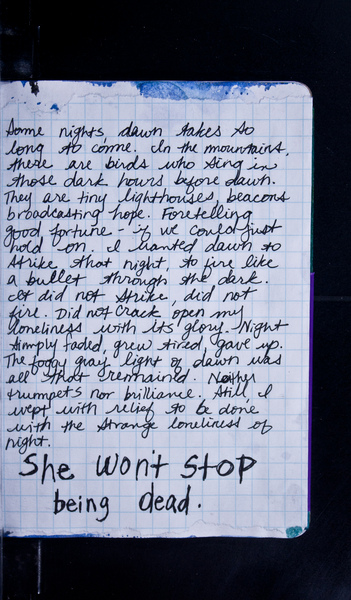 Some nights dawn takes so
long to come. In the mountains,
there are birds who sing in
those dark hours before dawn.
They are tiny lighthouses, beacons
broadcasting hope. Foretelling
good fortune - if we could just
hold on. I wanted dawn to
strike that night, to fire like
a bullet through the dark.
It did not strike, did not
fire. Did not crack open my
loneliness with its glory. Night
simply faded, grew tired, gave up.
The foggy gray light of dawn was
all that remained. Neither
trumpets nor brilliance. Still, I
wept with relief to be done
with the strange loneliness of
night.
She won't stop
being dead.